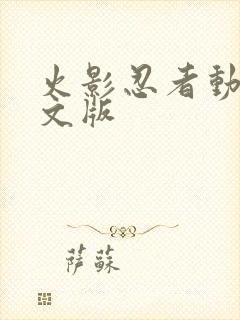 火影忍者動
文版
萨蘇